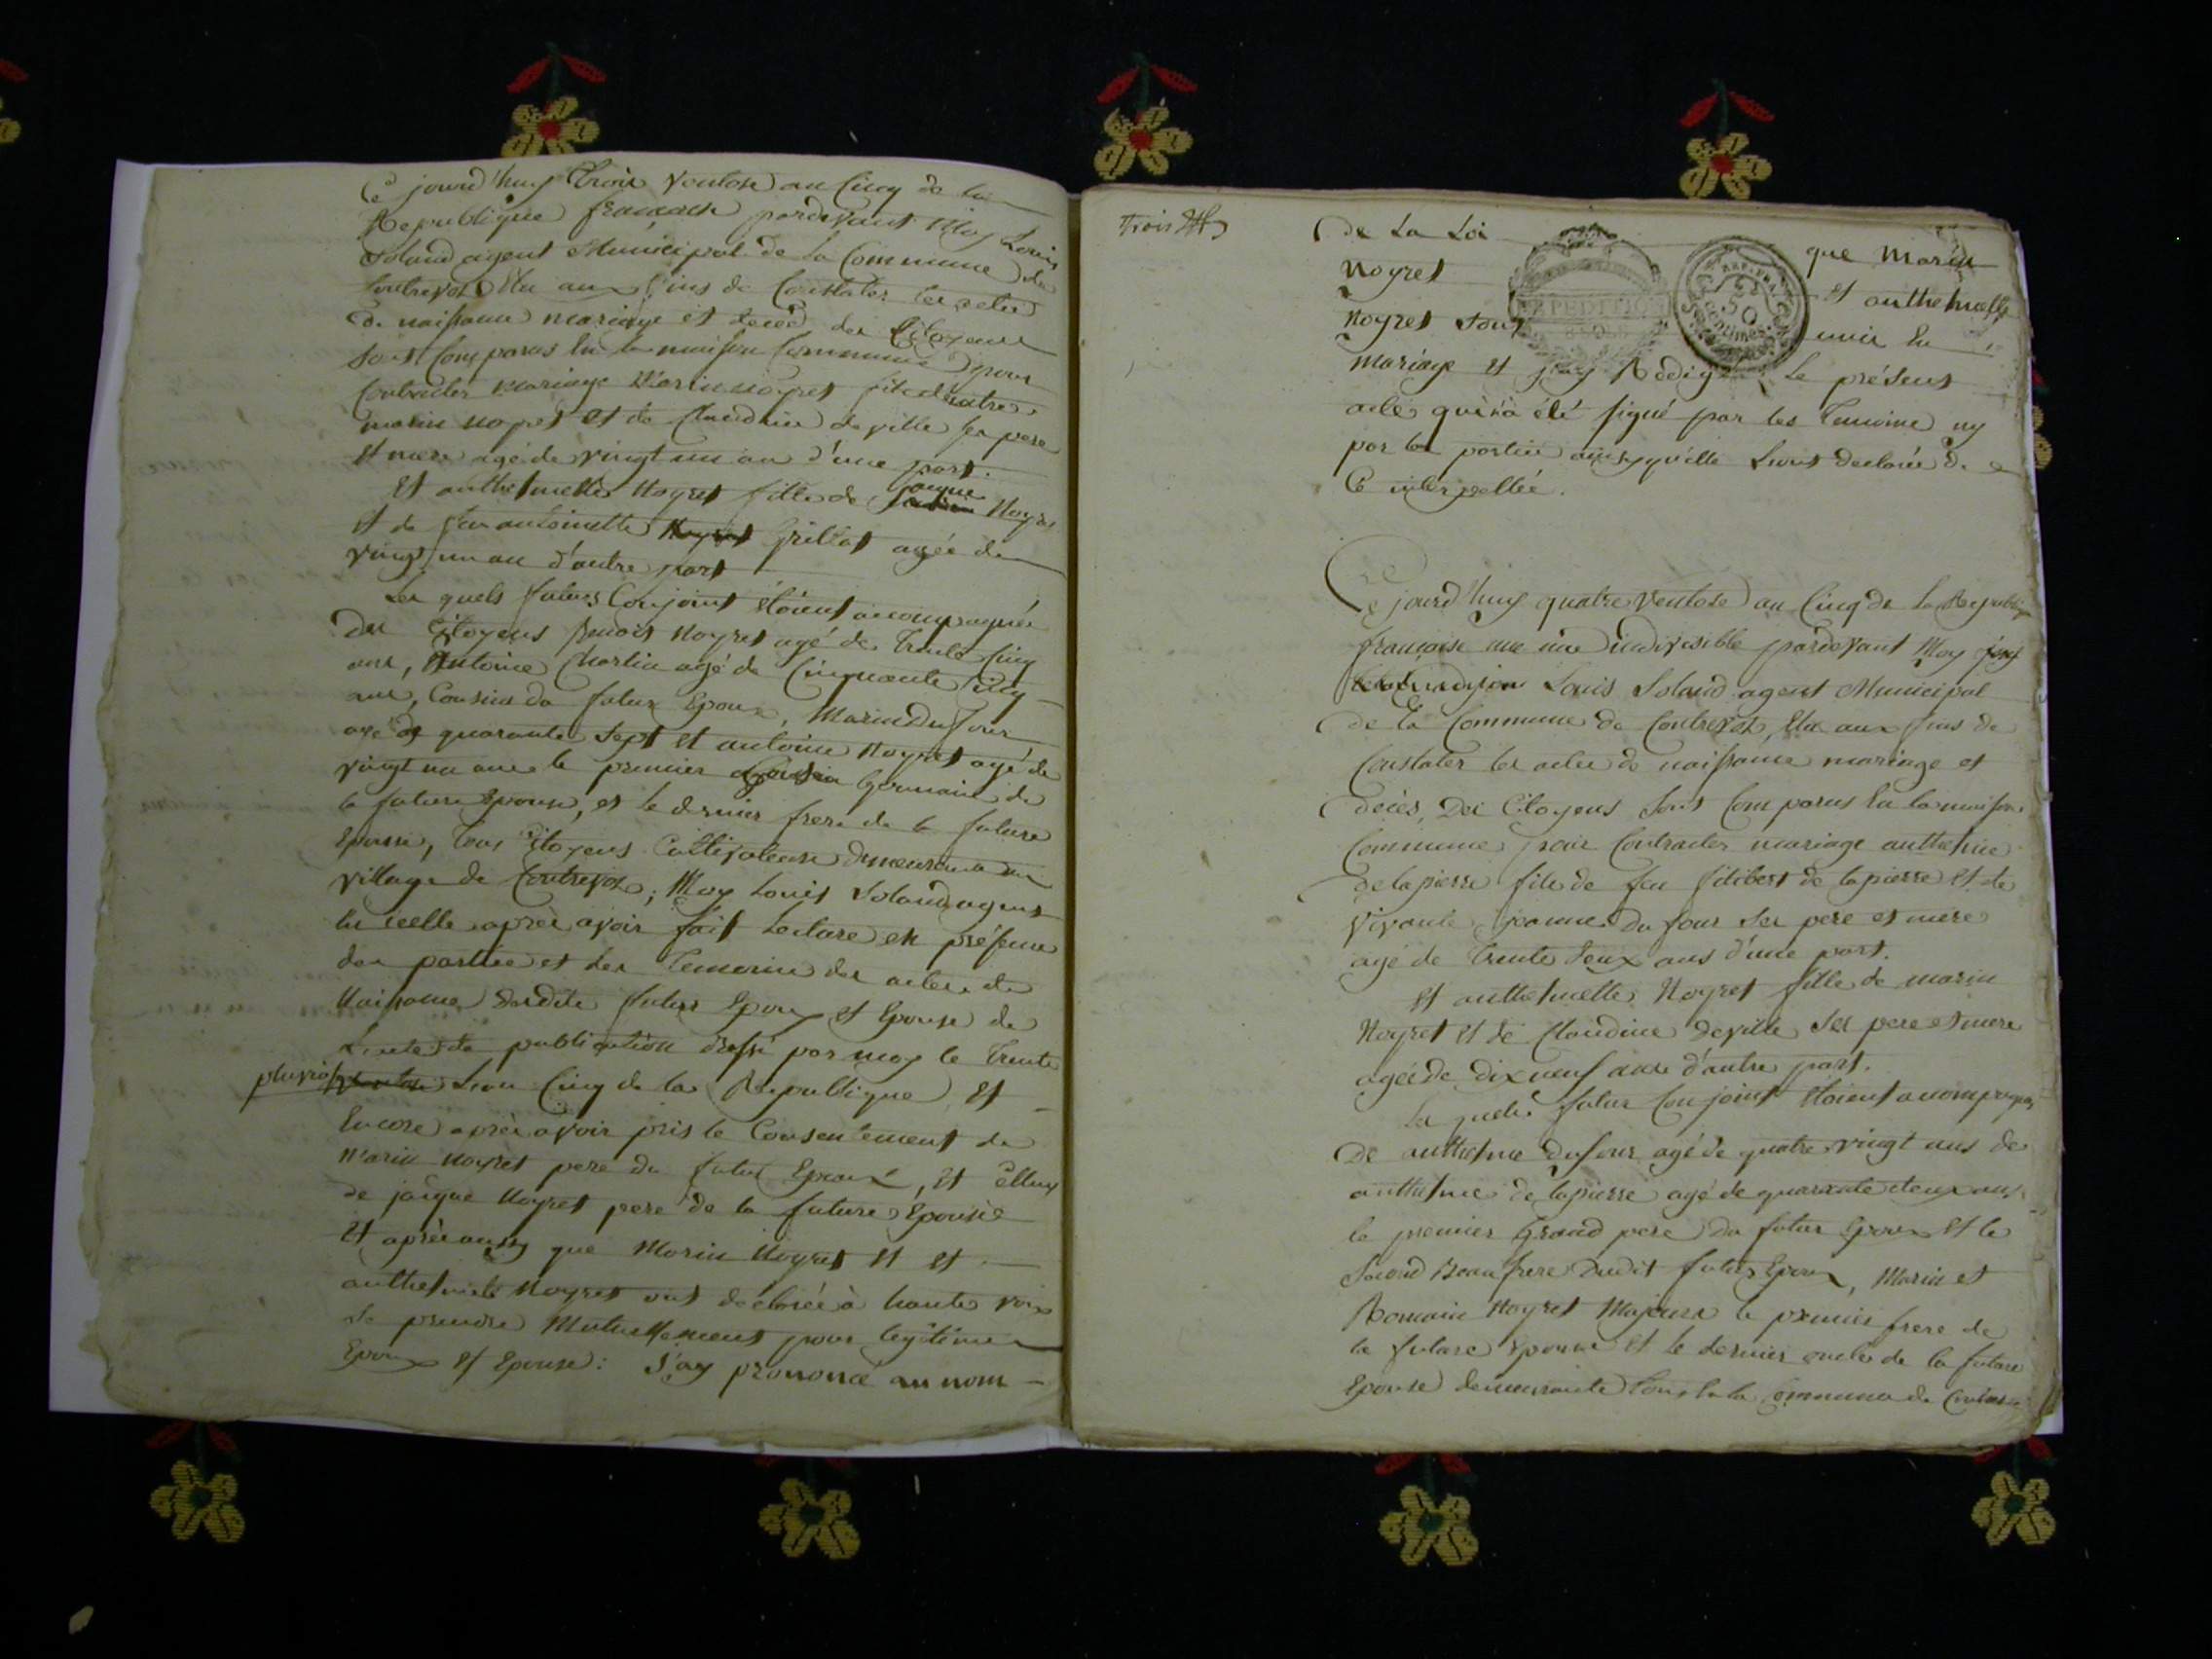 Ce jourd'huy trois ventose an Cinq de la
Republique francaise pardevant Moy Louis
Soland agent Municipal de la Commune de
Contrevoz Elu aux fins de Constater les actes
de naissance mariage et deces des Citoyens
sont Comparus En la maison Commune pour
Contracter mariage Marin noyret fils d'autre
marin noyret et de Claudine deville ses pere
et mere agé de vingt un an d'une part.
Et anthelmette Noyret fille de jaique Noyret
et de feu antoinette Grillot agée de
vingt un an d'autre part
Les quels futurs Conjoint Etoient accompagnés
Des Citoyens Benoit Noyret agé de Trente Cinq
ans, Antoine Martin agé de Cinquante Cinq
ans, Cousins du futur Epoux, Marin Dufour
agé de quarante Sept et antoine Noyret agé de
vingt un ans le premier Cousin Germain de
la future Epouse, et le dernier frere de la future
Epouse, tous Citoyens Cultivateurs demeurants au
village de Contrevoz; Moy Louis Soland agent
En icelle après avoir fait Lecture en présence
des parties et des Temoins des actes de
Naissance desdits futurs Epoux et Epouse de
L'acte de publication dressé par moy le Trente
pluviose L'an Cinq de la Republique Et
Encore après avoir pris le Consentement de
Marin noyret pere du futur Epoux, Et celluy
de jaique Noyret pere de la future Epouse
Et après aussy que Marin Noyret Et Et
anthelmette Noyret ont declarée à haute voix
Se prendre Mutuellement pour legitime
Epoux Et Epouse: J'ay prononcé au nom
Trois
De La Loi que Marin
Noyret et anthelmette
Noyret sont unis En
mariage et j'ay Rédigé Le présent
acte qui n'a été signé par les Temoins ny
par les parties ainsy qu'elle Luont declarée de
Ce interpellée.
EXPEDITION
50
Centimes
Ce jourd'huy quatre Ventose an Cinq de La Republique
francaise une une indivisible pardevant Moy
Louis Soland agent Municipal
de La Commune de Contrevoz, Elu aux fins de
Constater les actes de naissance mariage et
deces, Des Citoyens Sont Comparus En la maison
Commune pour Contracter mariage anthelme
delapierre fils de feu filibert de lapierre Et de
Vivante jeanne Dufour Ses pere et mere
agé de Trente deux ans d'une part.
Et anthelmette Noyret fille de marin
Noyret Et de Claudine deville Ses pere et mere
agée de dix neuf ans d'autre part.
Les quels futur Conjoint Etoient acompagnés
De anthelme Dufour agé de quatre vingt ans de
anthelme delapierre agé de quarante deux ans
le premier Grand pere du futur Epoux Et le
Second Beaufrere Dudit futur Epoux, Marin et
Romain Noyret Majeurs le premier frere de
la future Epouse Et le dernier oncle de la future
Epouse demeurants tous En la Commune de